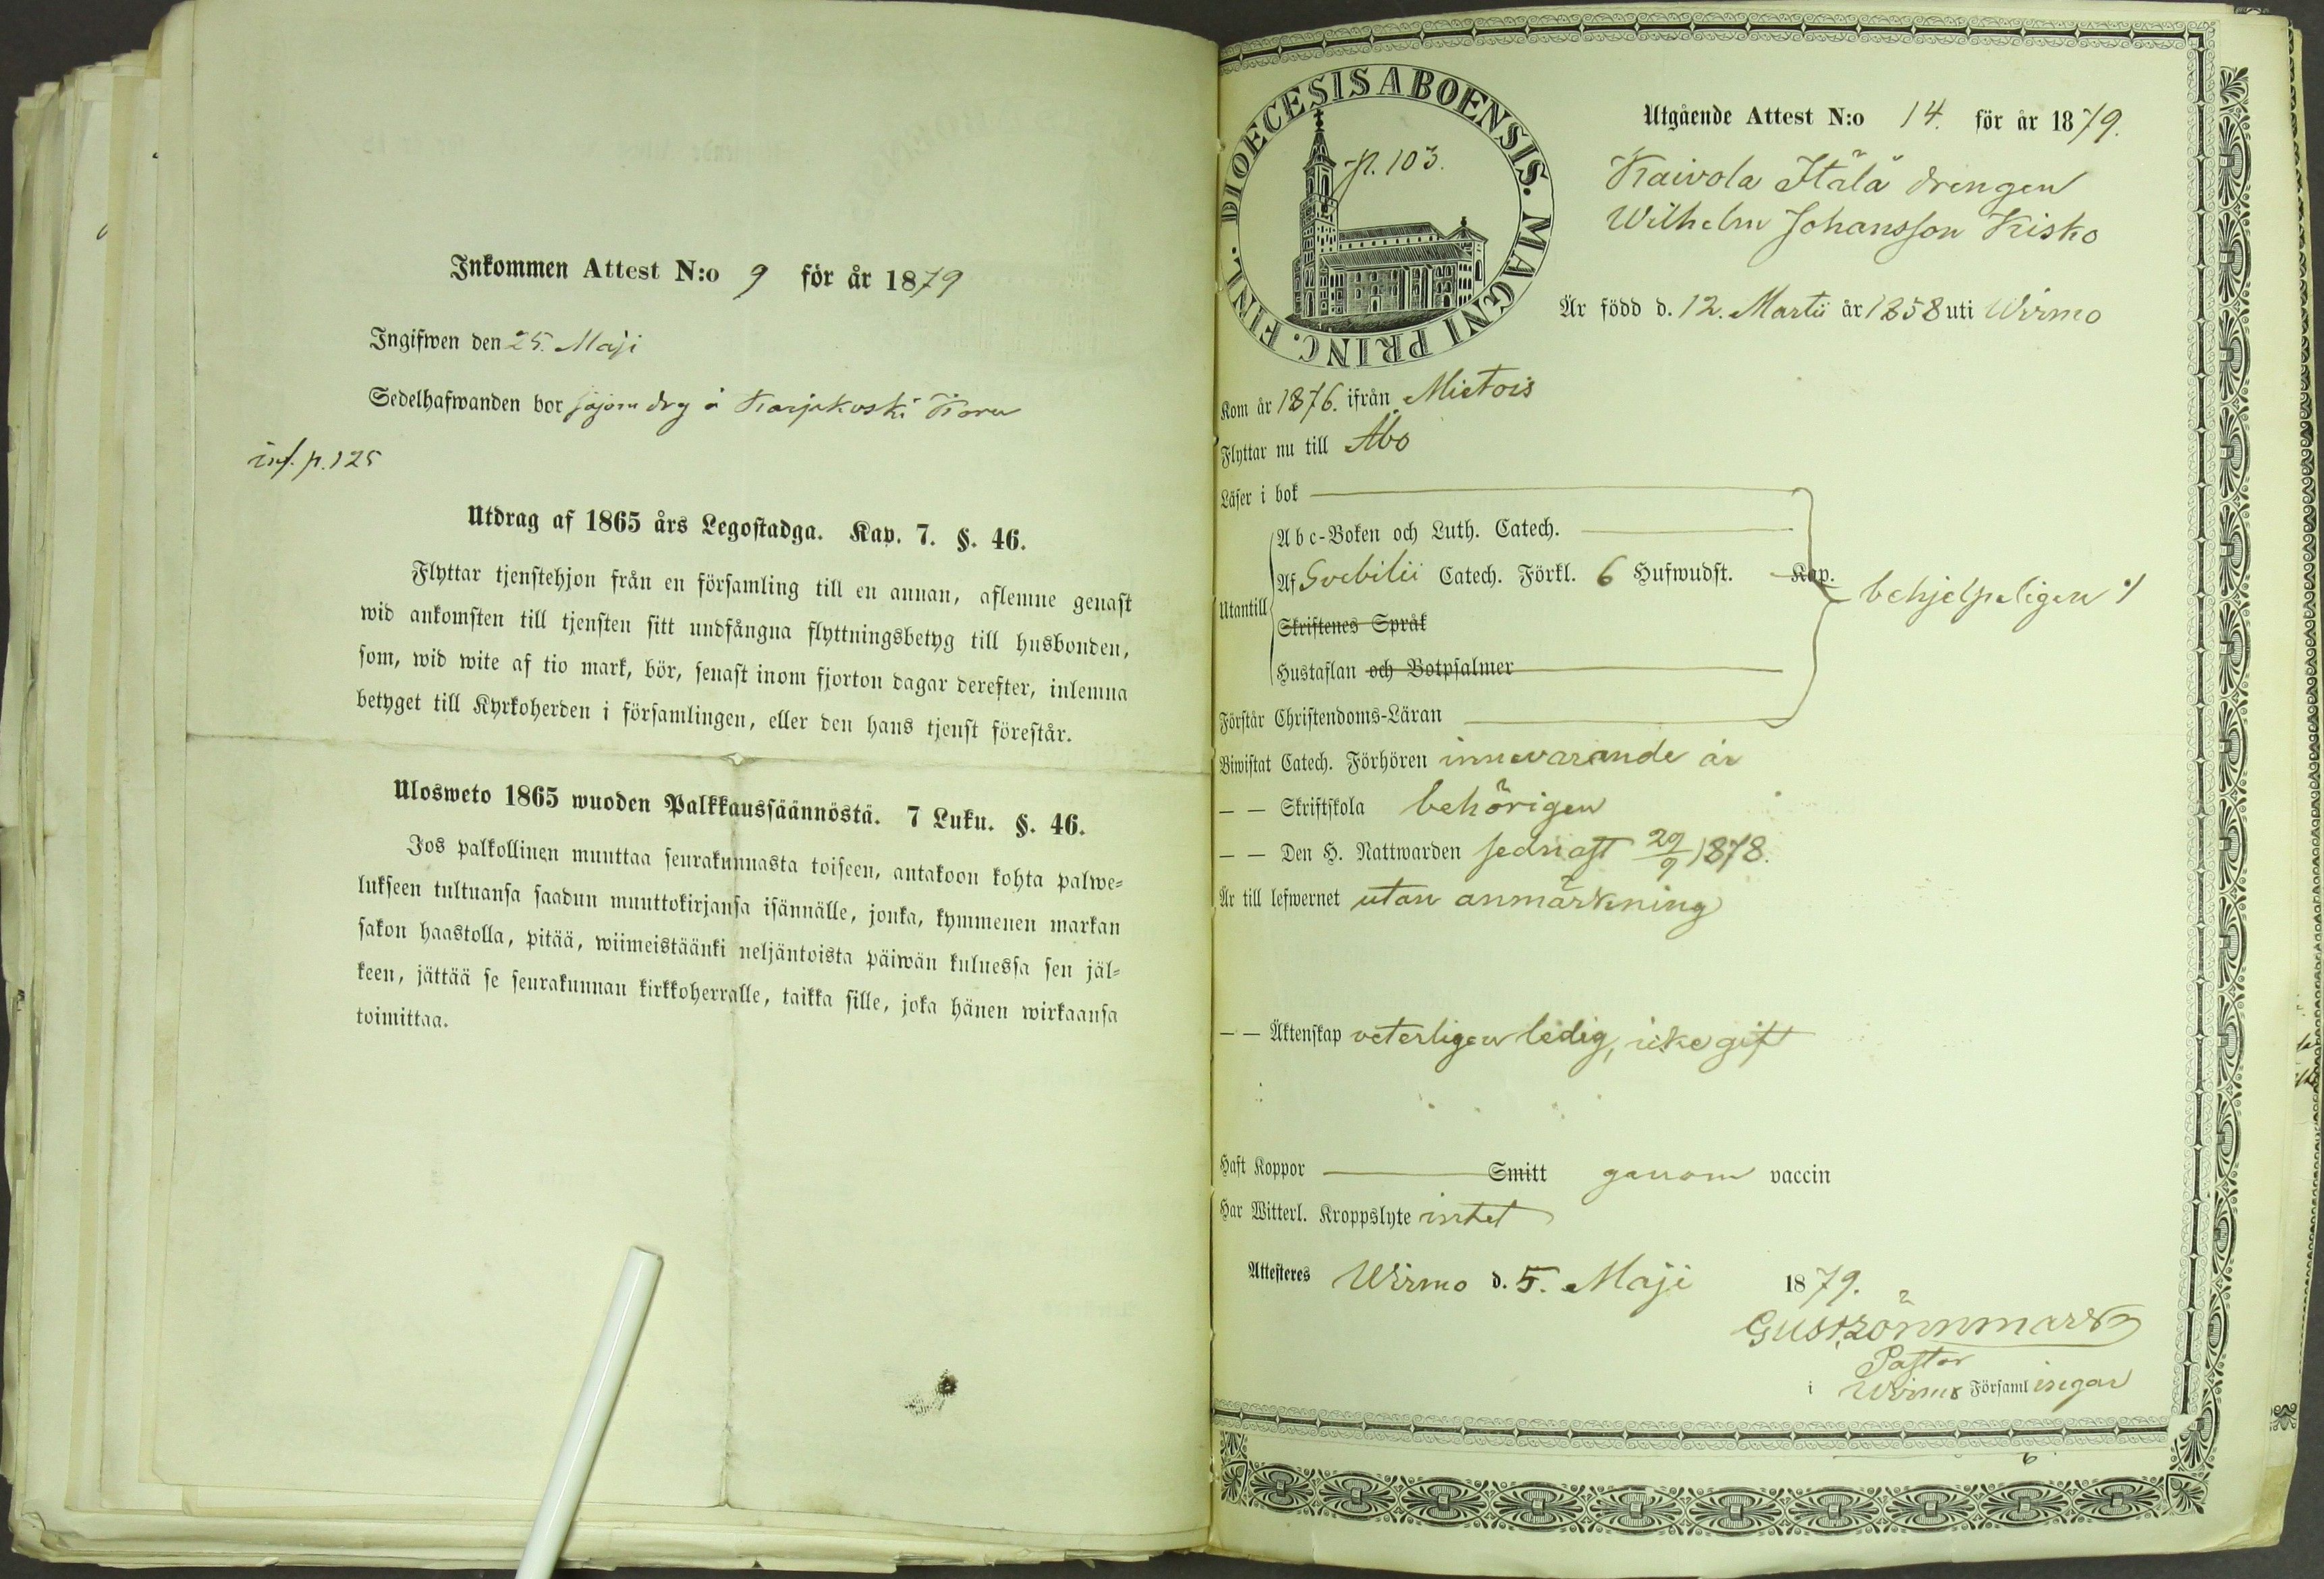 Inkommen Attest N:o 9 för år 1879
Ingifwen den 25. Maji
Sedelhafwanden bor såsom drg å Karjakoski
inf. p. 125
Utdrag af 1865 års Legostadga. Kap. 7. §. 46.
Flyttar tjenstehjon från en församling till en annan, aflemne genast
wid ankomsten till tjensten sitt undfångna flyttningsbetyg till husbonden,
som, wid wite af tio mark, bör, senast inom fjorton dagar derefter, inlemna
betyget till Kyrkoherden i församlingen, eller den hans tjenst förestår.
Ulosweto 1865 wuoden Palkkaussäännöstä. 7 Luku. §. 46.
Jos palkollinen muuttaa seurakunnasta toiseen, antakoon kohta palwe-
lukseen tultuansa saadun muuttokirjansa isännälle, jonka, kymmenen markan
sakon haastolla, pitää, wiimeistäänki neljäntoista päiwän kuluessa sen jäl-
keen, jättää se seurakunnan kirkkoherralle, taikka sille, joka hänen wirkaansa
toimittaa.
DIOECESIS ABOENSIS. MAGNI PRINC. FINL.
p. 103.
Utgående Attest N:o 14. för år 1879.
Kaivola Itälä drengen
Wilhelm Johansson Kisko
Är född d. 12. Martii år 1858 uti Wirmo
Kom år 1876. ifrån Mietois
Flyttar nu till Åbo
Läser i bok
Utantill
Abc-Boken och Luth. Catech.
Af Svebilii Catech. Förkl. 6 Hufwudst. Kap.
behjelpeligen
Skriftenes Språk
Hustaflan och Botpsalmer
Förstår Christendoms-Läran
Biwistat Catech. Förhören innevarande år
— — Skriftskola behörigen
— — Den H. Nattwarden sednast 29/9 1878.
Är till lefwernet utan anmärkning
— — Äktenskap veterligen ledig, icke gift
Haft Koppor Smitt genom vaccin
Har Witterl. Kroppslyte intet
Attesteres Wirmo d. 5. Maji 1879.
Gust. Lönnmark
Pastor
i Wirmo Församlingar
6